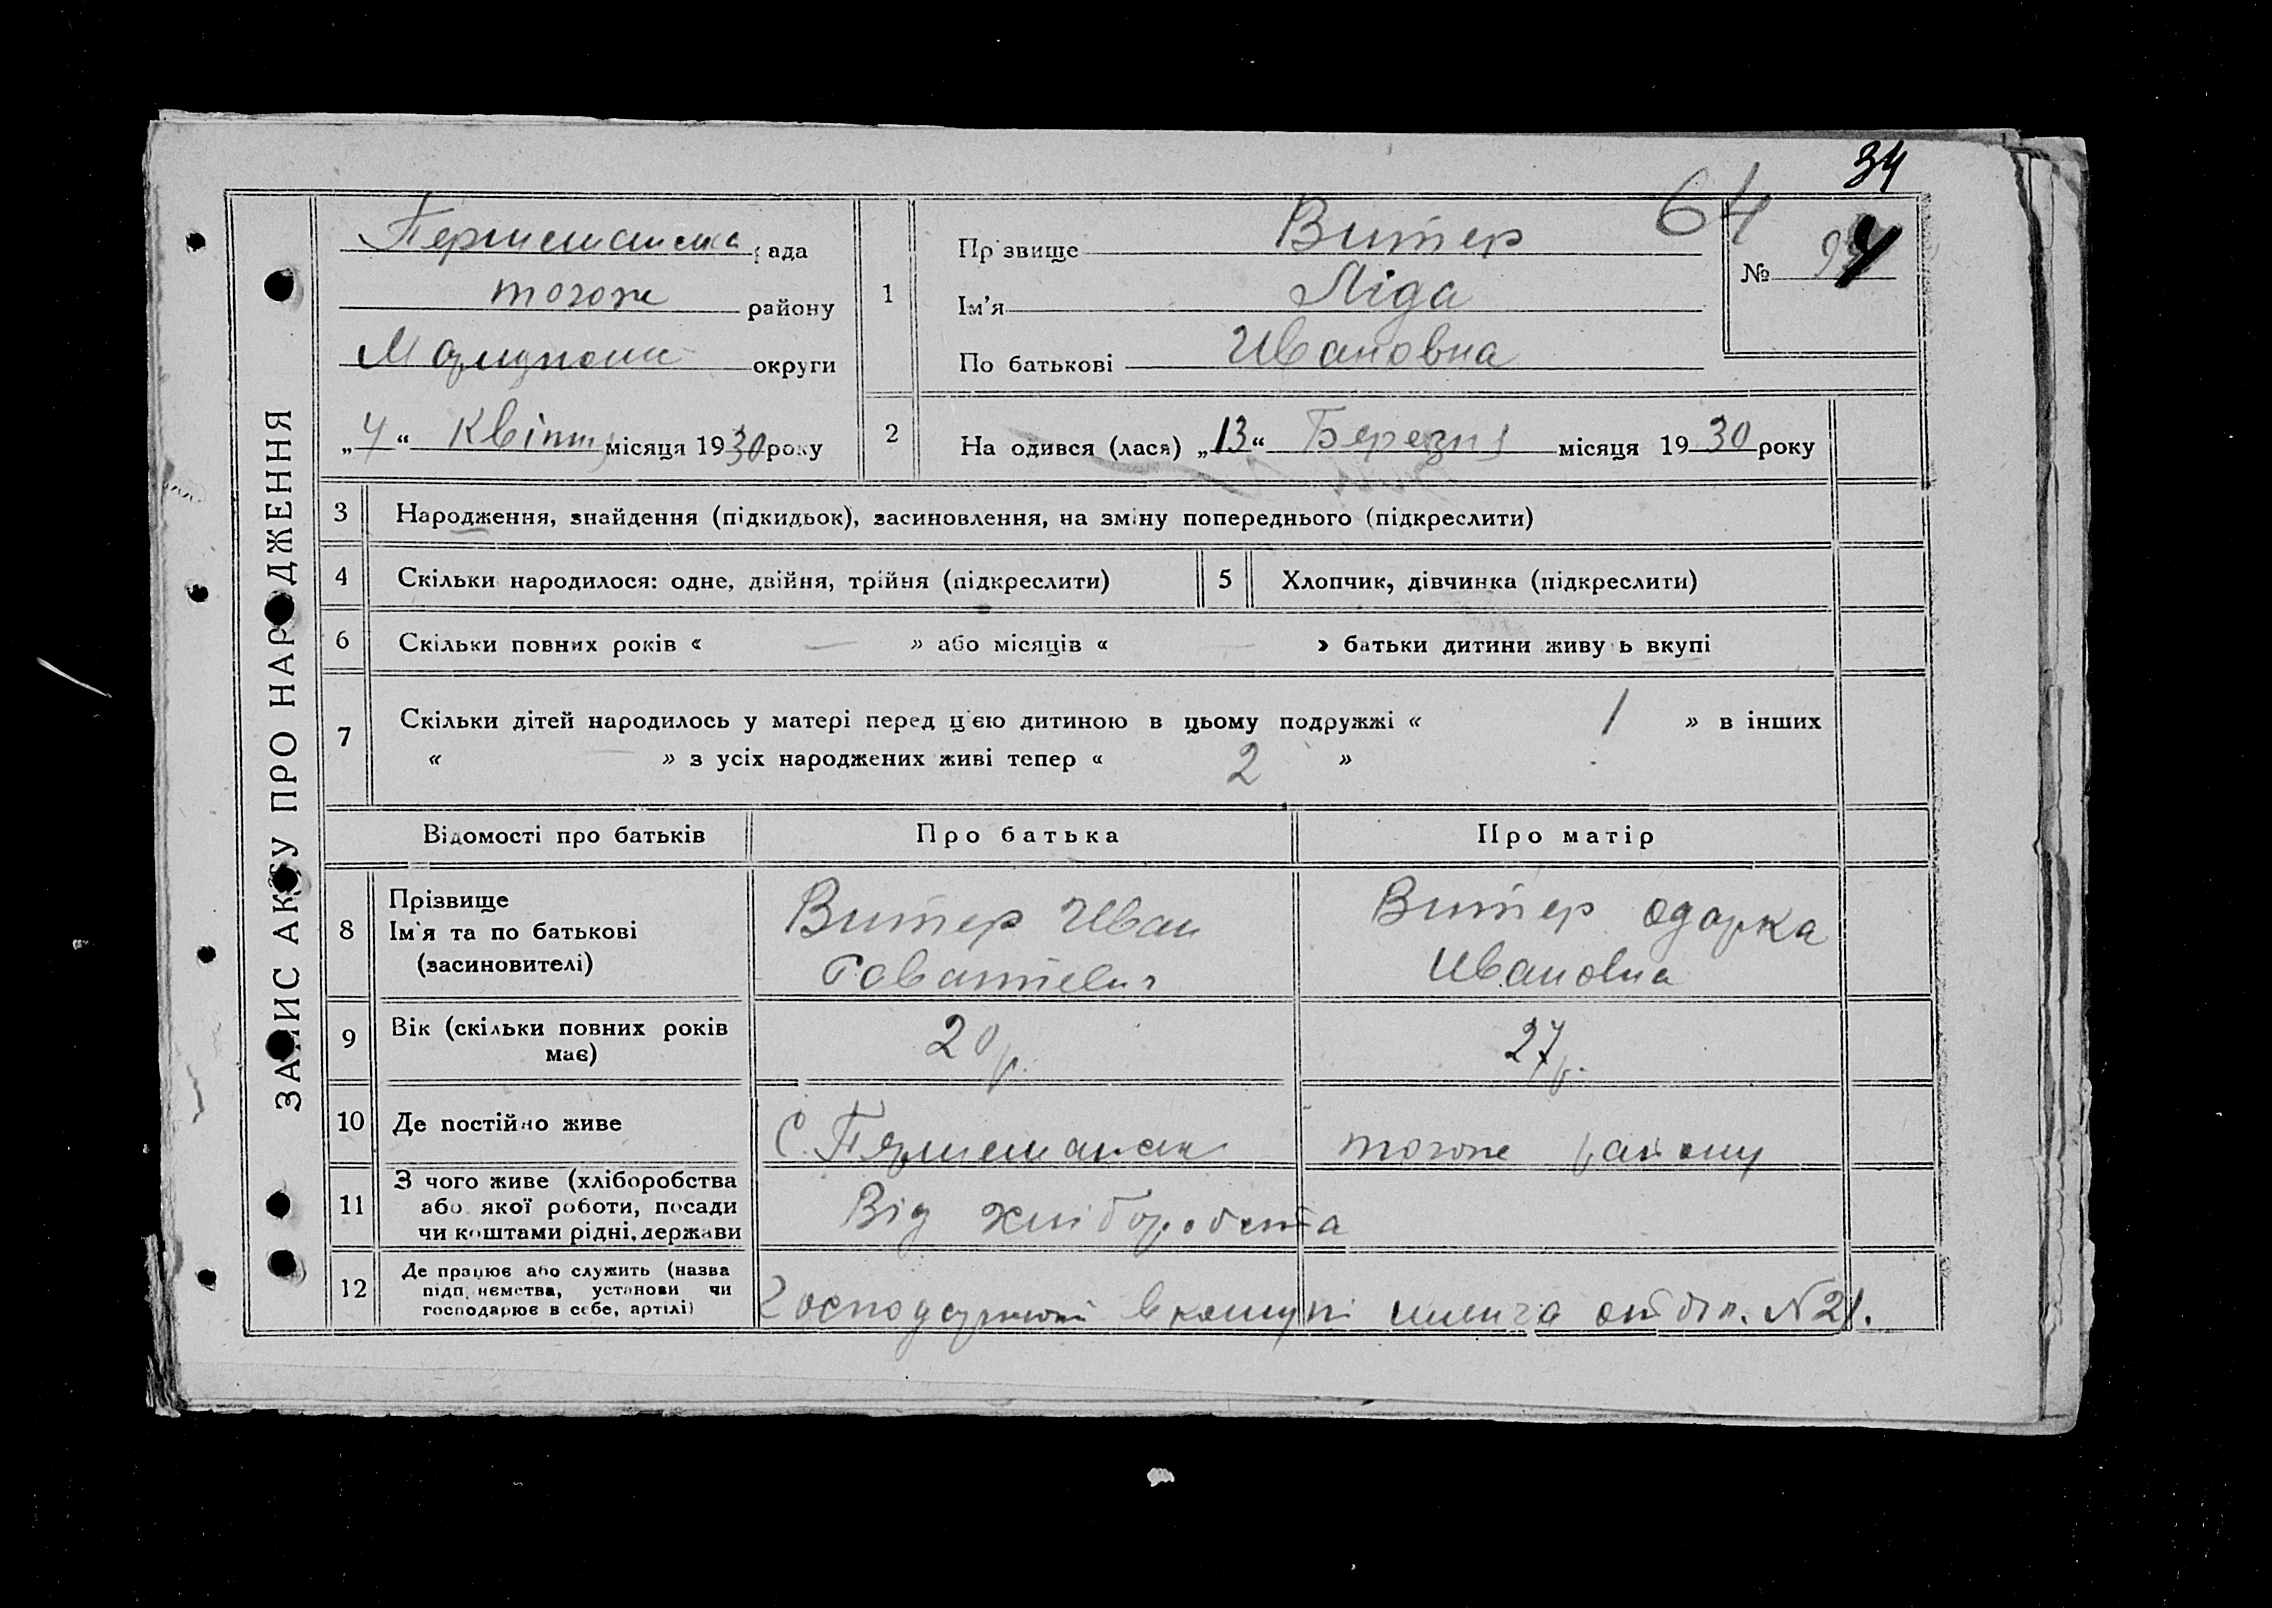 34
64
ЗАПИС АКТУ ПРО НАРОДЖЕННЯ
рада
тогоже району
округи
„4“ Квітня місяця 1930 року
1
Прізвище Витер
Ім’я Ліда
По батькові Ивановна
№
2
На одився (лася) „13“ Березня місяця 1930 року
3 Народження, знайдення (підкидьок), засиновлення, на зміну попереднього (підкреслити)
4 Скільки народилося: одне, двійня, трійня (підкреслити)
5 Хлопчик, дівчинка (підкреслити)
6 Скільки повних років « — » або місяців « — » батьки дитини живуть вкупі
7 Скільки дітей народилось у матері перед цією дитиною в цьому подружжі « 1 » в інших
« — » з усіх народжених живі тепер « 2 »
Відомості про батьків Про батька Про матір
8 Прізвище
Ім’я та по батькові
(засиновителі)
Витер Иван
Витер Одарка
Ивановна
9 Вік (скільки повних років
має)
20 р.
27 р.
10 Де постійно живе
С. тогоже району
11 З чого живе (хліборобства
або якої роботи, посади
чи коштами рідні, держави
Від хліборобства
12 Де працює або служить (назва
підприємства, установи чи
господарює в себе, артілі)
в комуні №21.